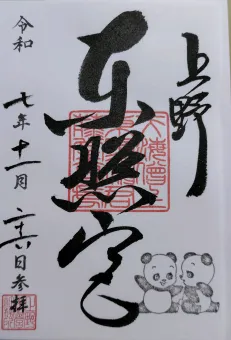 上野
東照宮
令和
七年十一月
日参拝